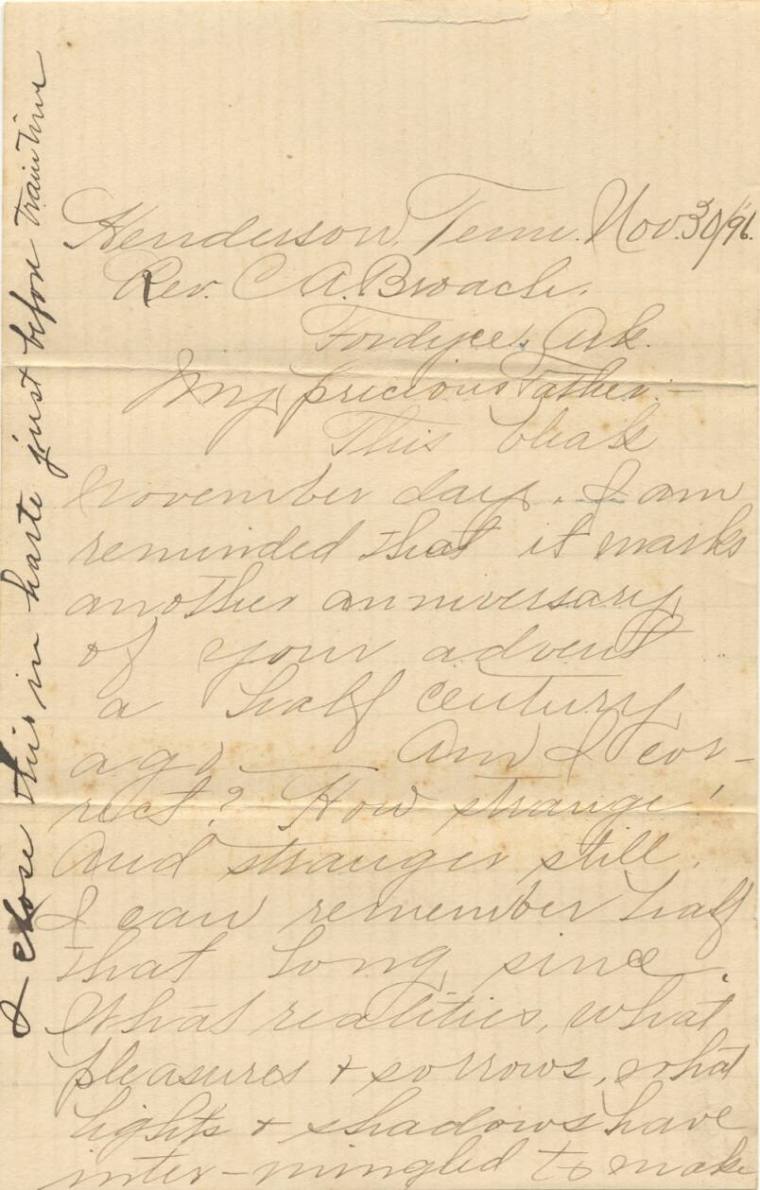 Henderson, Tenn. Nov. 30/96.
Rev. C. A. Broach.
Fordyce, Ark.
My precious Father:-
This bleak
November day, I am
reminded that it marks
another anniversary
of your advent
a half century
ago. Am I cor-
rect? How strange!
And stranger still,
I can remember half
that long since.
What realities, what
pleasures & sorrows, what
lights & shadows have
inter-mingled to make
I close this in haste just before train time